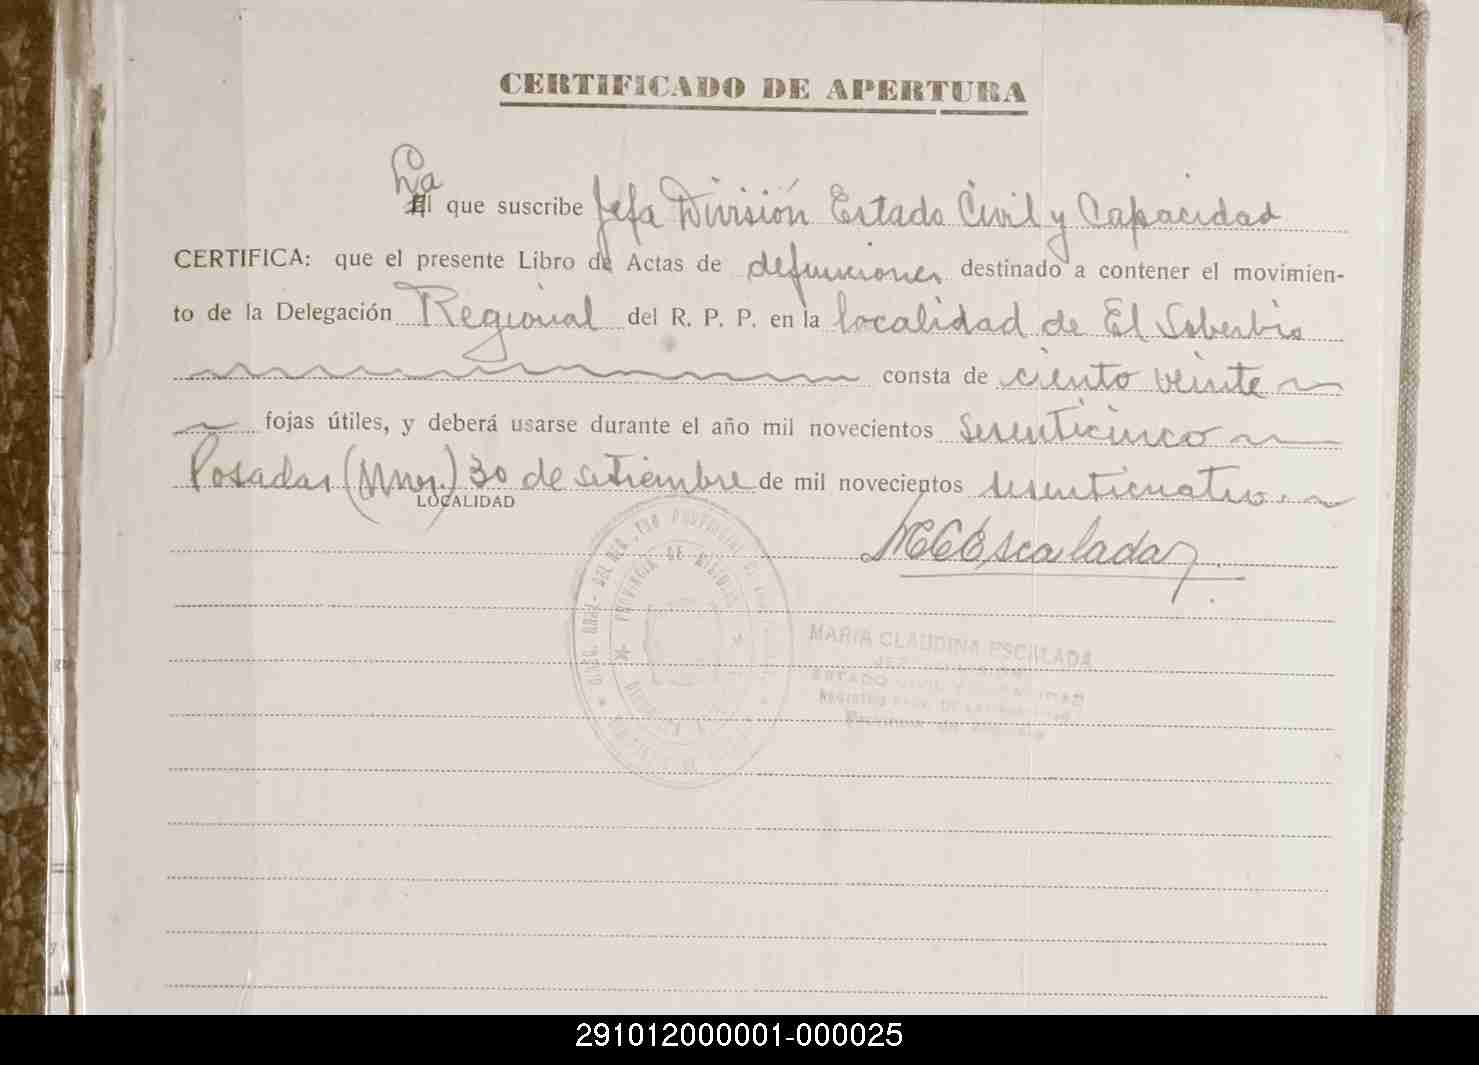 CERTIFICADO DE APERTURA
La
El que suscribe Jefa División Estado Civil y Capacidad
CERTIFICA: que el presente Libro de Actas de defunciones destinado a contener el movimien-
to de la Delegación Regional del R. P. P. en la localidad de El Soberbio
consta de ciento veinte
fojas útiles, y deberá usarse durante el año mil novecientos sesenticinco
Posadas (Mnes.) 30 de setiembre de mil novecientos sesenticuatro.
LOCALIDAD
MCEscalada
PROVINCIA DE MISIONES
MARIA CLAUDINA ESCALADA
JEFA DIVISION
ESTADO CIVIL Y CAPACIDAD
REGISTRO PROV. DE LAS PERSONAS
Provincia de Misiones
291012000001-000025